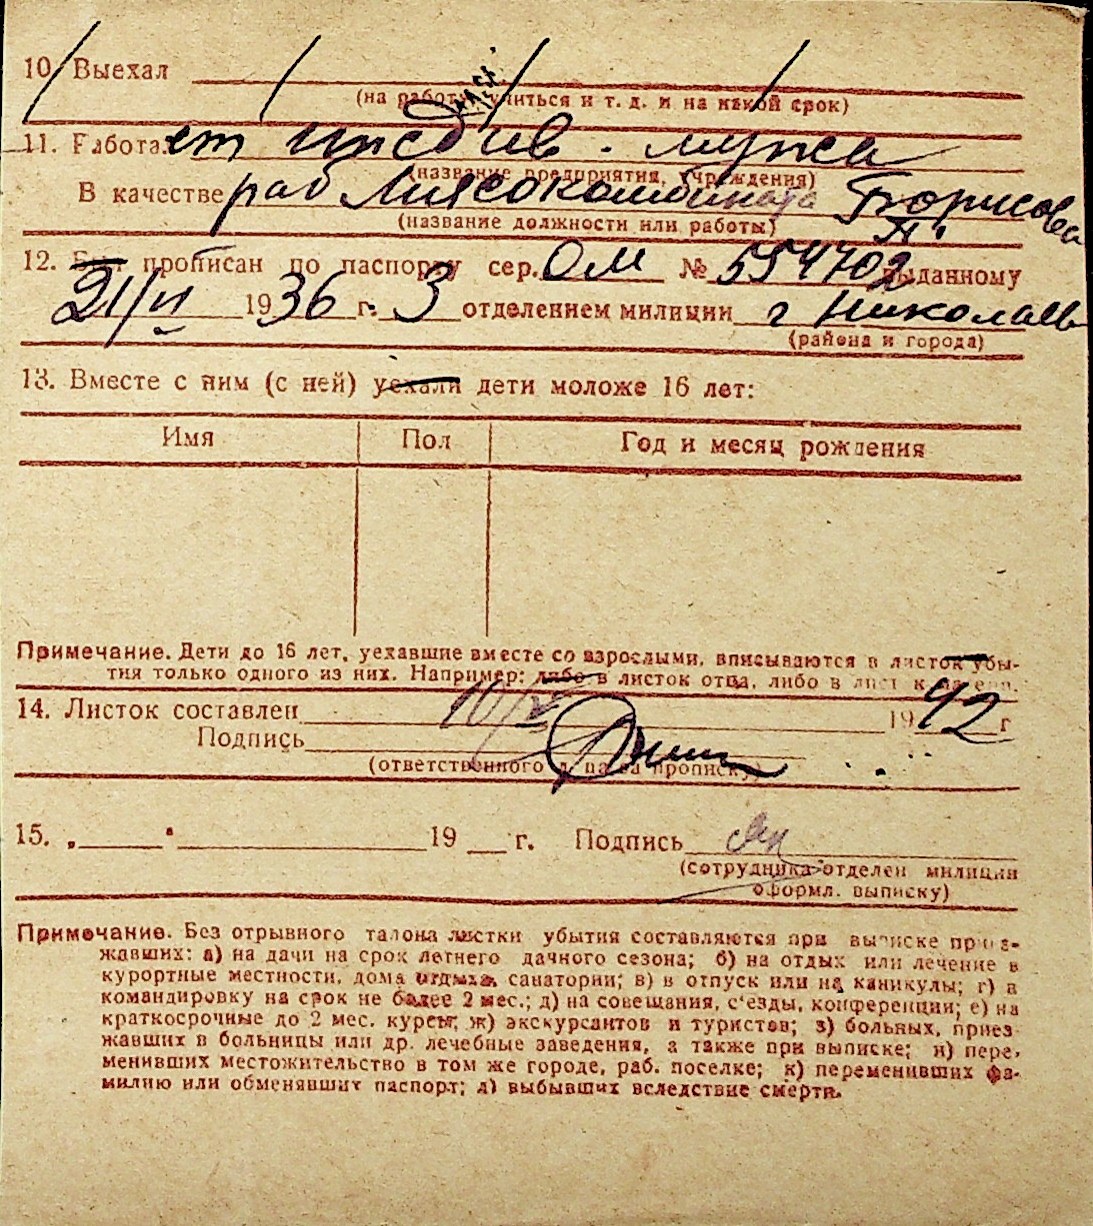 10. Выехал
(на работу, учиться и т. д. и на какой срок)
11. Работает иждив. мужа
(название предприятия, учреждения)
В качестве раб Мясокомбината Борисова
(название должности или работы)
12. Был прописан по паспорту сер. ОМ № 554702 выданному
21/II 1936 г. 3 отделением милиции г Николаев
(района и города)
13. Вместе с ним (с ней) уехали дети моложе 16 лет:
Имя Пол Год и месяц рождения
Примечание. Дети до 16 лет, уехавшие вместе со взрослыми, вписываются в листок убы-
тия только одного из них. Например: либо в листок отца, либо в листок матери.
14. Листок составлен 10/V 1942 г
Подпись
(ответственного лица за прописку)
15. „ " 19 г. Подпись
(сотрудника отделен милиции
оформл. выписку)
Примечание. Без отрывного талона листки убытия составляются при выписке приез-
жавших: а) на дачи на срок летнего дачного сезона; б) на отдых или лечение в
курортные местности, дома отдыха, санатории; в) в отпуск или на каникулы; г) в
командировку на срок не более 2 мес.; д) на совещания, съезды, конференции; е) на
краткосрочные до 2 мес. курсы; ж) экскурсантов и туристов; з) больных, приез-
жавших в больницы или др. лечебные заведения, а также при выписке; и) пере-
менивших местожительство в том же городе, раб. поселке; к) переменивших фа-
милию или обменявших паспорт; л) выбывших вследствие смерти.